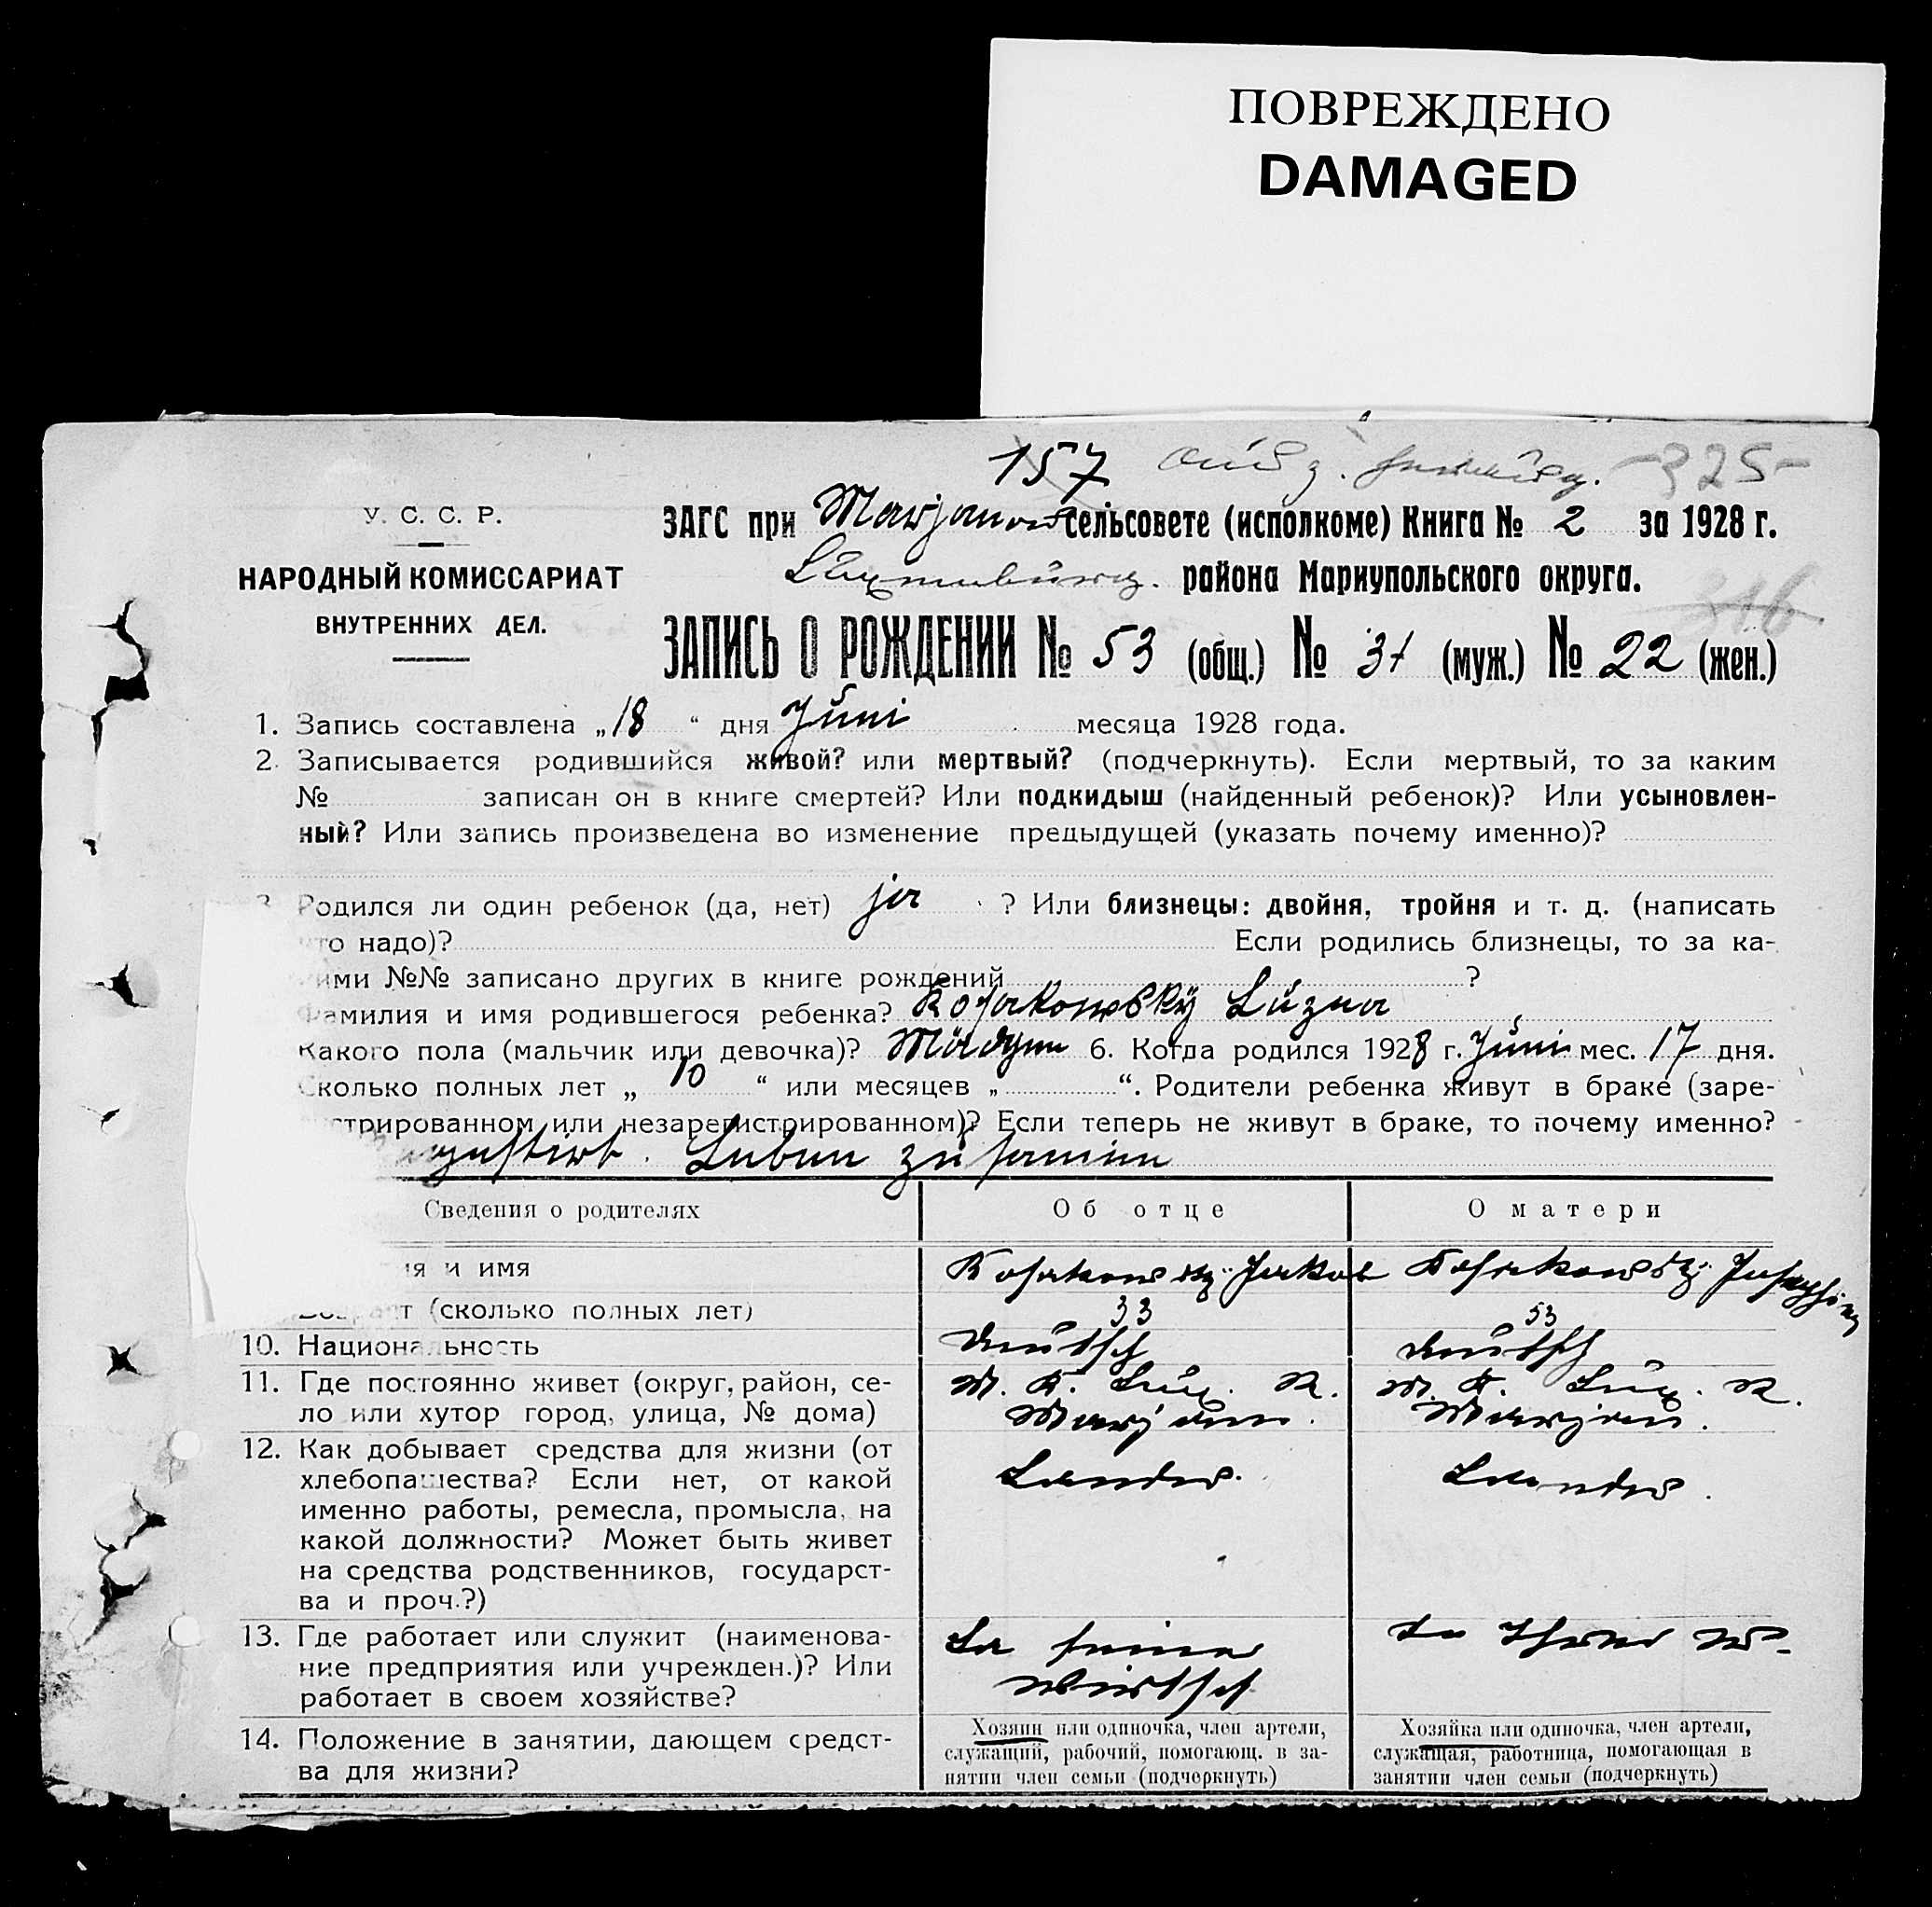 ПОВРЕЖДЕНО
DAMAGED
157 -325-
У. С. С. Р.
НАРОДНЫЙ КОМИССАРИАТ
ВНУТРЕННИХ ДЕЛ.
ЗАГС при Marjanow сельсовете (исполкоме) Книга № 2 за 1928 г.
Luxemburg. района Мариупольского округа.
316
ЗАПИСЬ О РОЖДЕНИИ № 53 (общ.) № 31 (муж.) № 22 (жен.)
1. Запись составлена „18 “ дня Juni месяца 1928 года.
2. Записывается родившийся живой? или мертвый? (подчеркнуть). Если мертвый, то за каким
№ записан он в книге смертей? Или подкидыш (найденный ребенок)? Или усыновлен-
ный? Или запись произведена во изменение предыдущей (указать почему именно)?
Родился ли один ребенок (да, нет) ja ? Или близнецы: двойня, тройня и т. д. (написать
что надо)? Если родились близнецы, то за ка-
кими №№ записано других в книге рождений ?
Фамилия и имя родившегося ребенка? Kosakowsky
Какого пола (мальчик или девочка)? Mädchen 6. Когда родился 1928 г. Juni мес. 17 дня.
Сколько полных лет „ 10 “ или месяцев „ “. Родители ребенка живут в браке (заре-
гистрированном или незарегистрированном)? Если теперь не живут в браке, то почему именно?
Leben zusammen
Сведения о родителях Об отце О матери
ия и имя Kosakowsky Jakob Kosakowsky Josephina
Возраст (сколько полных лет) 33 53
10. Национальность deutsch deutsch
11. Где постоянно живет (округ, район, се- M. K. Lux. R. M. K. Lux. R.
ло или хутор город, улица, № дома) Marjan. Marjan.
12. Как добывает средства для жизни (от
хлебопашества? Если нет, от какой Landw. Landw.
именно работы, ремесла, промысла, на
какой должности? Может быть живет
на средства родственников, государст-
ва и проч.?)
13. Где работает или служит (наименова- In seiner In Ihrer W-
ние предприятия или учрежден.)? Или Wirtsch
работает в своем хозяйстве?
14. Положение в занятии, дающем средст-
ва для жизни?
Хозяин или одиночка, член артели,
служащий, рабочий, помогающ. в за-
нятии член семьи (подчеркнуть)
Хозяйка или одиночка, член артели,
служащая, работница, помогающая в
занятии член семьи (подчеркнуть)